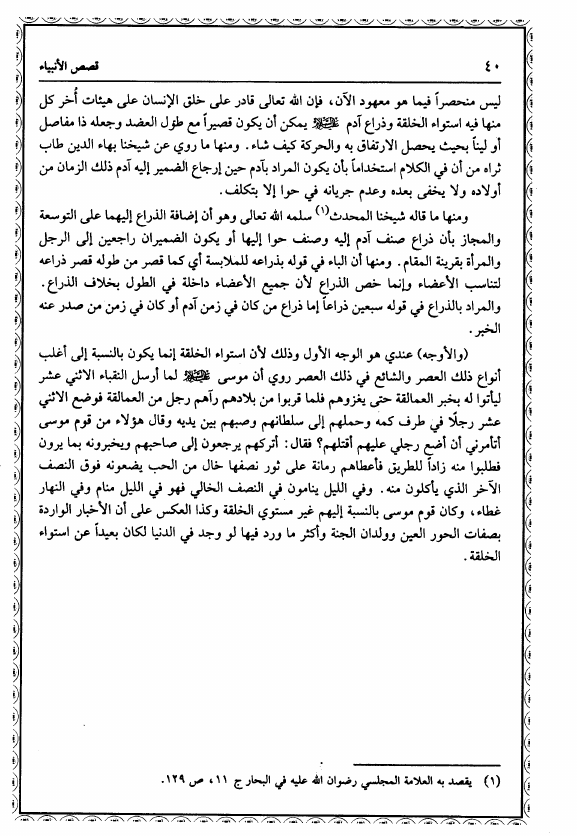 ٤٠ قصص الأنبياء
ليس منحصراً فيما هو معهود الآن، فإن الله تعالى قادر على خلق الإنسان على هيئات أُخر كل
منها فيه استواء الخلقة وذراع آدم عليه السلام يمكن أن يكون قصيراً مع طول العضد وجعله ذا مفاصل
أو ليناً بحيث يحصل الارتفاق به والحركة كيف شاء. ومنها ما روي عن شيخنا بهاء الدين طاب
ثراه من أن في الكلام استخداماً بأن يكون المراد بآدم حين إرجاع الضمير إليه آدم ذلك الزمان من
أولاده ولا يخفى بعده وعدم جريانه في حوا إلا بتكلف.
ومنها ما قاله شيخنا المحدث(١) سلمه الله تعالى وهو أن إضافة الذراع إليهما على التوسعة
والمجاز بأن ذراع صنف آدم إليه وصنف حوا إليها أو يكون الضميران راجعين إلى الرجل
والمرأة بقرينة المقام. ومنها أن الباء في قوله بذراعه للملابسة أي كما قصر من طوله قصر ذراعه
لتناسب الأعضاء وإنما خص الذراع لأن جميع الأعضاء داخلة في الطول بخلاف الذراع.
والمراد بالذراع في قوله سبعين ذراعاً إما ذراع من كان في زمن آدم أو كان في زمن من صدر عنه
الخبر.
(والأوجه) عندي هو الوجه الأول وذلك لأن استواء الخلقة إنما يكون بالنسبة إلى أغلب
أنواع ذلك العصر والشائع في ذلك العصر روي أن موسى عليه السلام لما أرسل النقباء الاثني عشر
ليأتوا له بخبر العمالقة حتى يغزوهم فلما قربوا من بلادهم رآهم رجل من العمالقة فوضع الاثني
عشر رجلًا في طرف كمه وحملهم إلى سلطانهم وصبهم بين يديه وقال هؤلاء من قوم موسى
أتأمرني أن أضع رجلي عليهم أقتلهم؟ فقال: أتركهم يرجعون إلى صاحبهم ويخبرونه بما يرون
فطلبوا منه زاداً للطريق فأعطاهم رمانة على ثور نصفها خال من الحب يضعونه فوق النصف
الآخر الذي يأكلون منه. وفي الليل ينامون في النصف الخالي فهو في الليل منام وفي النهار
غطاء، وكان قوم موسى بالنسبة إليهم غير مستوي الخلقة وكذا العكس على أن الأخبار الواردة
بصفات الحور العين وولدان الجنة وأكثر ما ورد فيها لو وجد في الدنيا لكان بعيداً عن استواء
الخلقة.
(١) يقصد به العلامة المجلسي رضوان الله عليه في البحار ج ١١، ص ١٢٩.